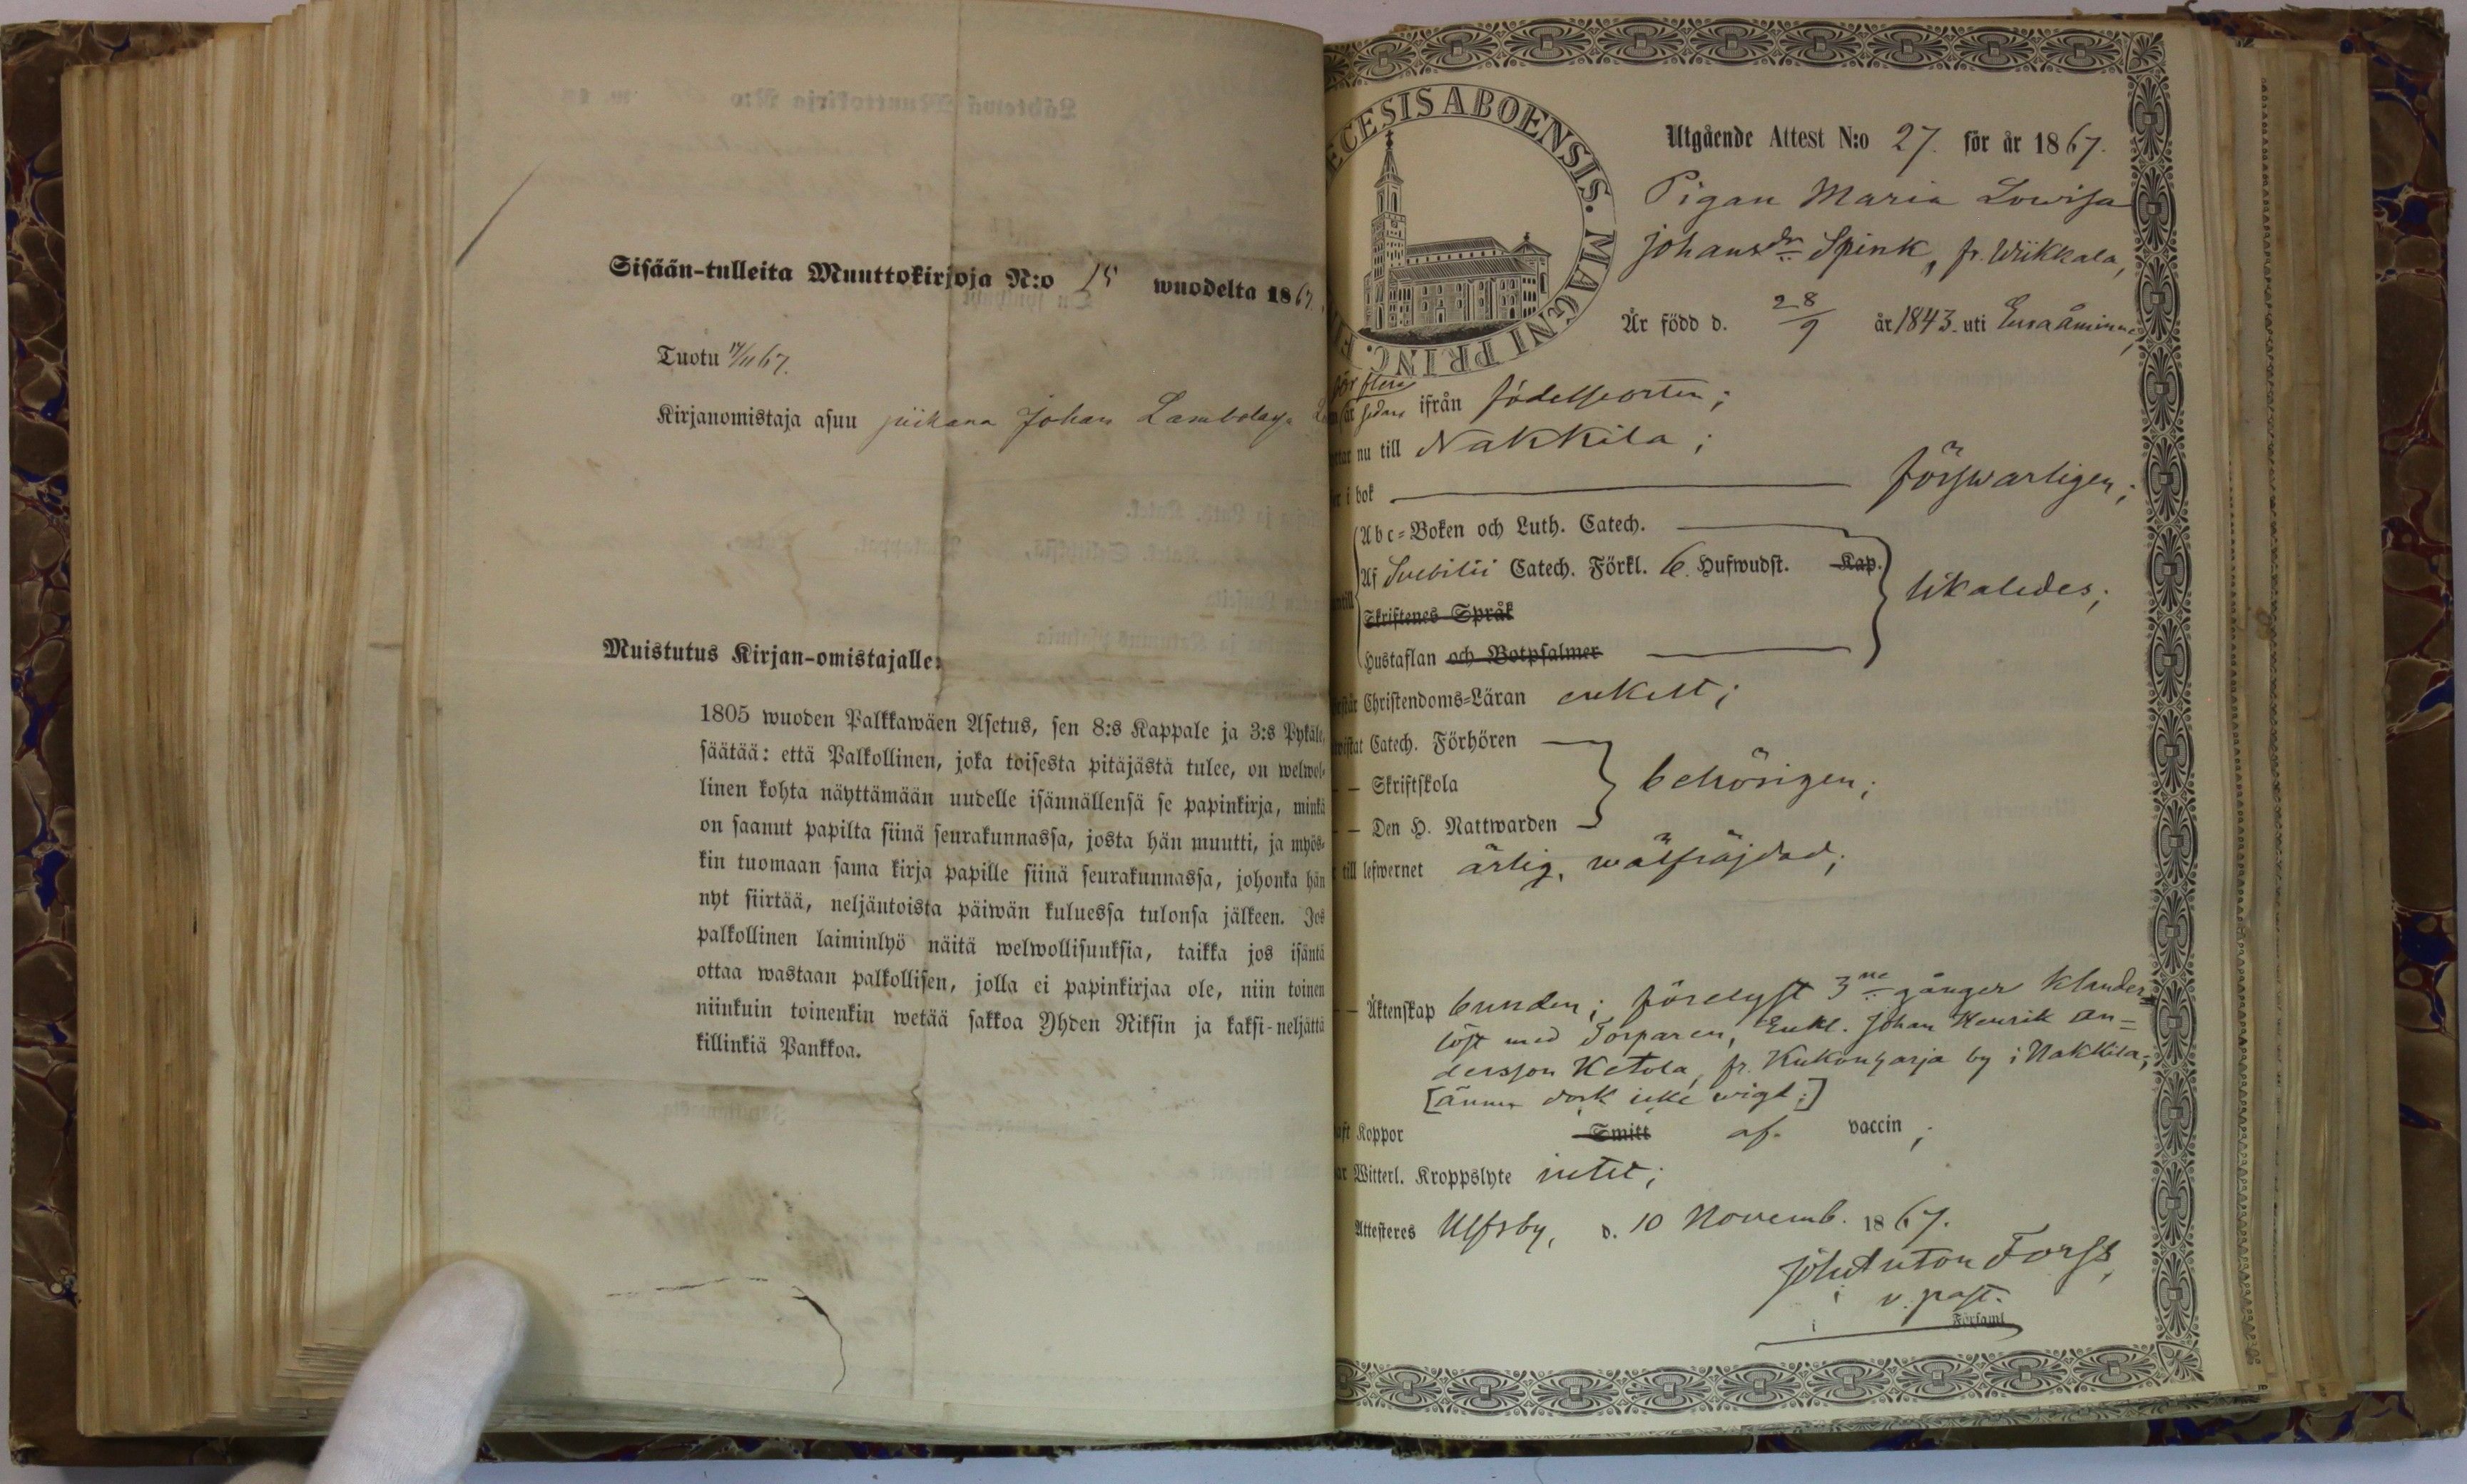 Sisään-tulleita Muuttokirjoja N:o 15 wuodelta 1867.
Tuotu 17/11 67.
Kirjanomistaja asuu piikana Johan
Muistutus Kirjan-omistajalle:
1805 wuoden Palkkawäen Asetus, sen 8:s Kappale ja 3:s Pykäle,
säätää: että Palkollinen, joka toisesta pitäjästä tulee, on welwol-
linen kohta näyttämään uudelle isännällensä se papinkirja, minkä
on saanut papilta siinä seurakunnassa, josta hän muutti, ja myös-
kin tuomaan sama kirja papille siinä seurakunnassa, johonka hän
nyt siirtää, neljäntoista päiwän kuluessa tulonsa jälkeen. Jos
palkollinen laiminlyö näitä welwollisuuksia, taikka jos isäntä
ottaa wastaan palkollisen, jolla ei papinkirjaa ole, niin toinen
niinkuin toinenkin wetää sakkoa Yhden Riksin ja kaksi-neljättä
killinkiä Pankkoa.
ECESIS ABOENSIS. MAGNI PRINC. FI
Utgående Attest N:o 27. för år 1867.
Pigan Maria Lowisa
Johansdr Spink, fr. Wiikkala,
Är född d. 28/9 år 1843. uti Euraåminne,
för flere
år sedan ifrån födelseorten;
nu till Nakkila;
i bok försvarligen;
Abc-Boken och Luth. Catech.
Af Svebilii Catech. Förkl. 6. Hufwudst. Kap.
likaledes;
Skriftenes Språk
Hustaflan och Botpsalmer
Christendoms-Läran enkelt;
Catech. Förhören
— Skriftskola behörigen;
— Den H. Nattwarden
till lefwernet ärlig, wälfräjdad;
— Äktenskap bunden; förelyst 3ne gånger klander-
löst med Torparen, Enkl. Johan Henrik An=
dersson Ketola, fr. Kukonharja by i Nakkila;
[ännu dock icke wigd;]
Koppor Smitt af vaccin;
Witterl. Kroppslyte intet;
Attesteres Ulfsby, d. 10 Novemb. 1867.
Joh. Anton Forss,
v. past.
i Församl